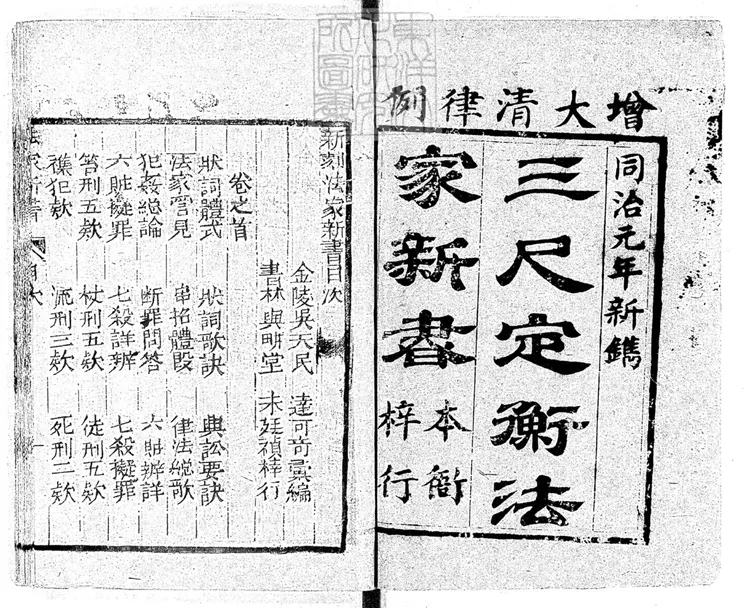 增大清律例
同治元年新鐫
三尺定衡法
家新書
本衙
梓行
新刻法家新書目次
金陵吳天民 達可奇彙編
書林與畊堂 朱廷禎梓行
卷之首
狀詞體式 狀詞歌訣 興訟要訣
法家管見 串招體段 律法總歌
犯姦總論 断罪問答 六賍辨詳
六賍擬罪 七殺詳辨 七殺擬罪
笞刑五欵 杖刑五欵 徒刑五欵
流刑三欵 死刑二欵
法家新書 目次